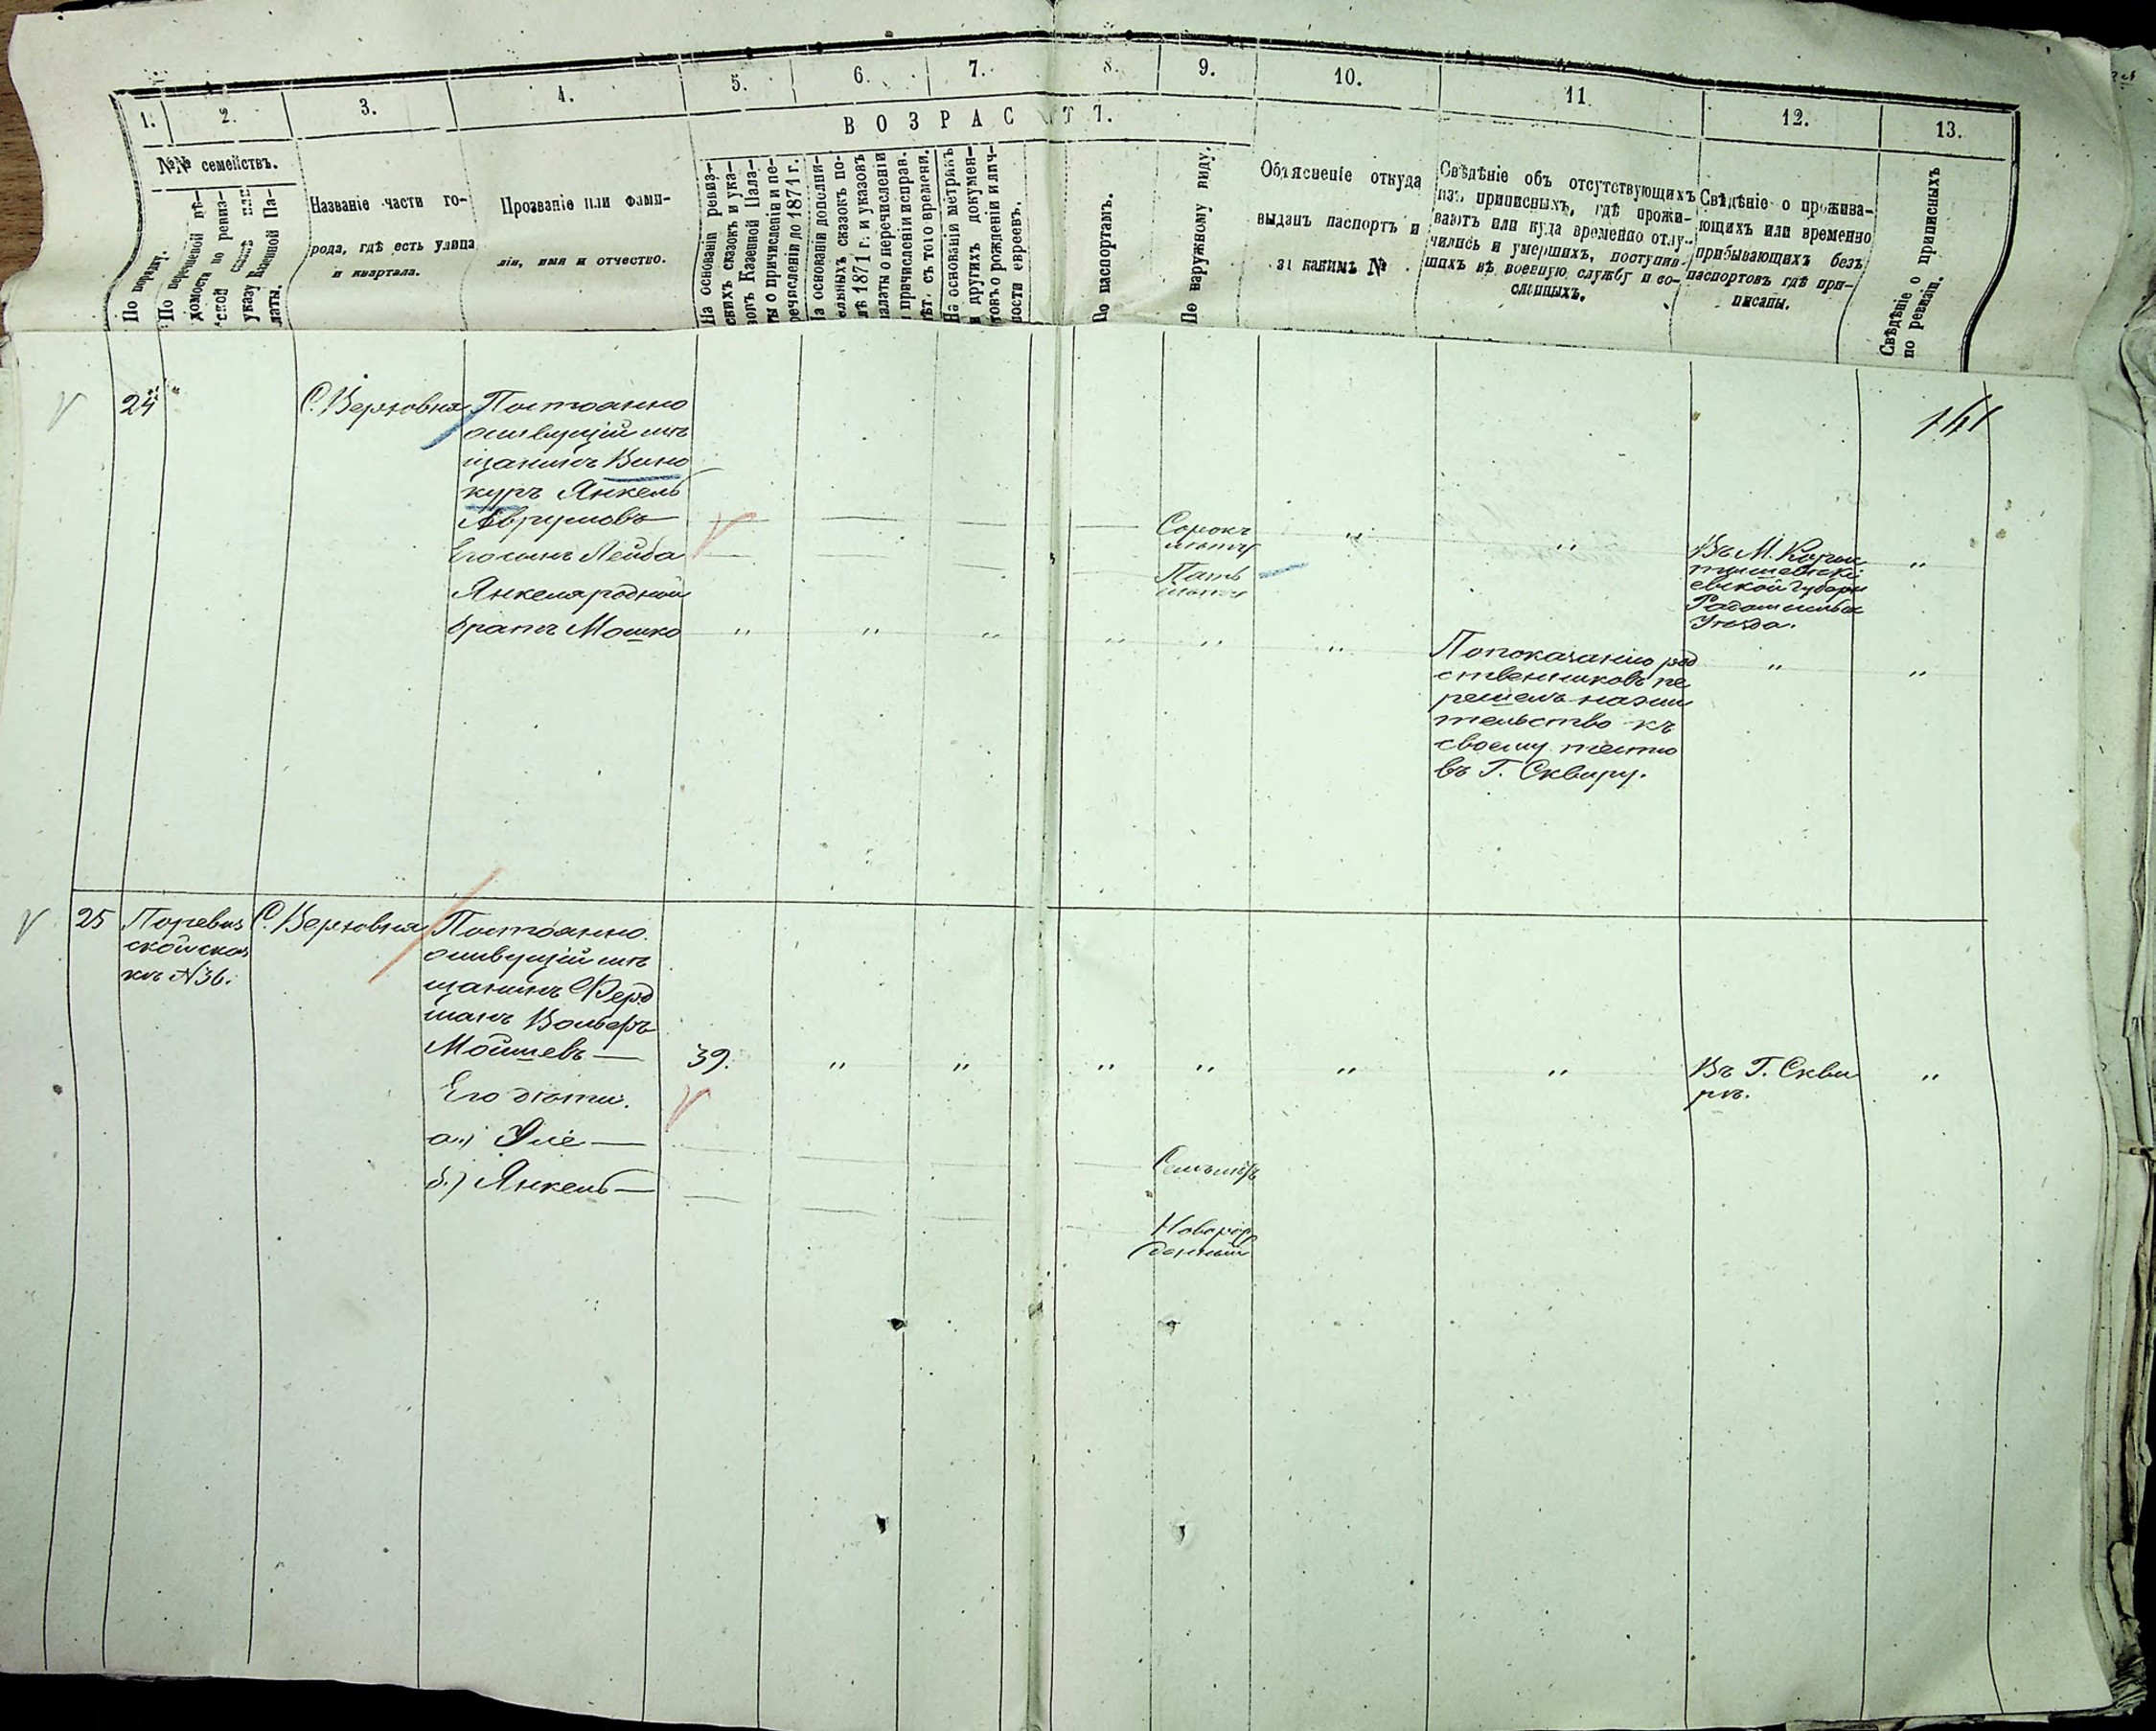 1.
2.
3.
4.
5.
6.
7.
8.
9.
10.
11.
12.
13.
ВОЗРАСТЪ.
По порядку.
№№ семействъ.
По перечневой вѣ-
домости по ревиз-
ской сказкѣ или
указу Казенной Па-
латы.
Названіе части го-
рода, гдѣ есть улица
и квартала.
Прозваніе или фами-
лія, имя и отчество.
На основаніи ревиз-
скихъ сказокъ и ука-
зовъ Казенной Пала-
ты о причисленіи и пе-
речисленіи до 1871 г.
На основаніи дополни-
тельныхъ сказокъ по-
слѣ 1871 г. и указовъ
палаты о перечисленіи
и причисленіи исправ.
лѣт. съ того времени.
На основаніи метрикъ
и другихъ докумен-
товъ о рожденіи и лич-
ности евреевъ.
По паспортамъ.
По наружному виду.
Объясненіе откуда
выданъ паспортъ и
за какимъ №
Свѣдѣніе объ отсутствующихъ
изъ приписныхъ, гдѣ прожи-
ваютъ или куда временно отлу-
чились и умершихъ, поступив-
шихъ въ военную службу и со-
сланныхъ.
Свѣдѣніе о прожива-
ющихъ или временно
прибывающихъ безъ
паспортовъ гдѣ при-
писаны.
Свѣдѣніе о приписныхъ
по ревизіи.
141
24
С. Верховня
Постоянно
живущій мѣ
щанинъ Вино
куръ Янкель
Аврумовъ
Сорокъ
лѣтъ
Въ М.
Губерн
Уѣзда.
Его сынъ Лейба
Пять
лѣтъ
Янкеля родной
братъ Мошко
По показанію род
ственниковъ пе
решелъ на жи
тельство къ
своему тестю
въ Г. Сквиру.
25
По ревиз
ской сказ
кѣ №36.
С. Верховня
Постоянно
живущій мѣ
щанинъ Ферд
манъ Вольфъ
Мойшевъ
39.
Въ Г. Скви
рѣ.
Его дѣти.
а.)
Семь лѣтъ
б.) Янкель
Новорож
денный